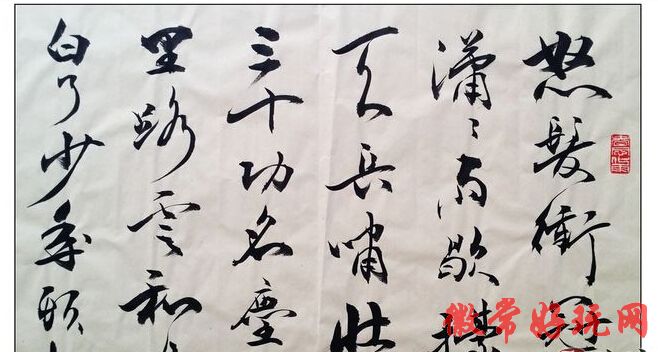 怒髮衝冠
瀟〻雨歇擡
天長嘯壯
三十功名塵
里路雲和
白了少年頭
徽常好玩网